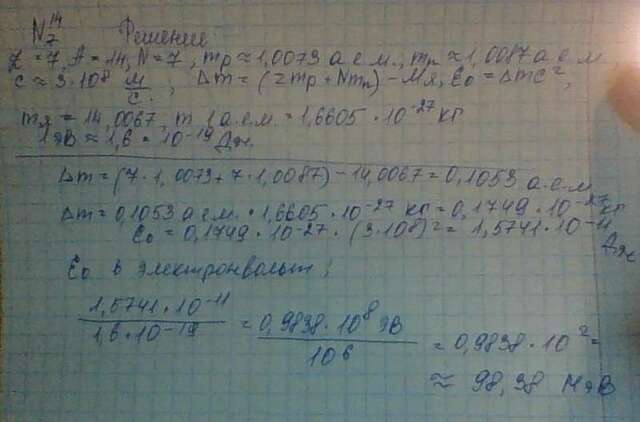 N₇¹⁴ Решение
Z = 7, A = 14, N = 7, mp ≈ 1,0073 а.е.м., mn ≈ 1,0087 а.е.м.,
c ≈ 3·10⁸ м/с, Δm = (Zmp + Nmn) – Mя, E₀ = Δmc²,
mя = 14,0067, m 1 а.е.м. = 1,6605 · 10⁻²⁷ кг
1 эВ ≈ 1,6 · 10⁻¹⁹ Дж.
Δm = (7·1,0073 + 7·1,0087) – 14,0067 = 0,1053 а.е.м
Δm = 0,1053 а.е.м. · 1,6605 · 10⁻²⁷ кг = 0,1749 · 10⁻²⁷ кг
E₀ = 0,1749 · 10⁻²⁷ · (3·10⁸)² = 1,5741 · 10⁻¹¹ Дж
E₀ в электронвольт:
1,5741 · 10⁻¹¹ / 1,6 · 10⁻¹⁹ = 0,9838 · 10⁸ эВ / 10⁶ = 0,9838 · 10² =
≈ 98,38 МэВ